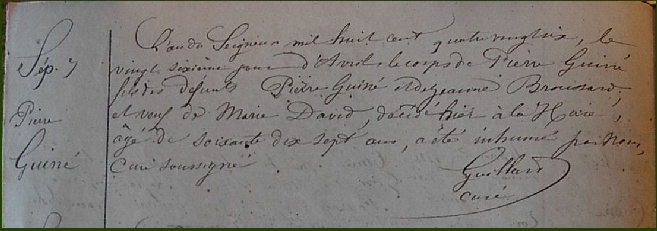 Sép. 7
Pierre
Guiné
L'an du Seigneur mil huit cent quatre vingt six, le
vingt sixième jour d'Avril le corps de Pierre Guiné
fils des défunts Pierre Guiné et de Jeanne Broussard,
et veuf de Marie David, décédé hier à la Haie,
âgé de soixante dix sept ans, a été inhumé par Nous,
Curé soussigné
Guillard
curé